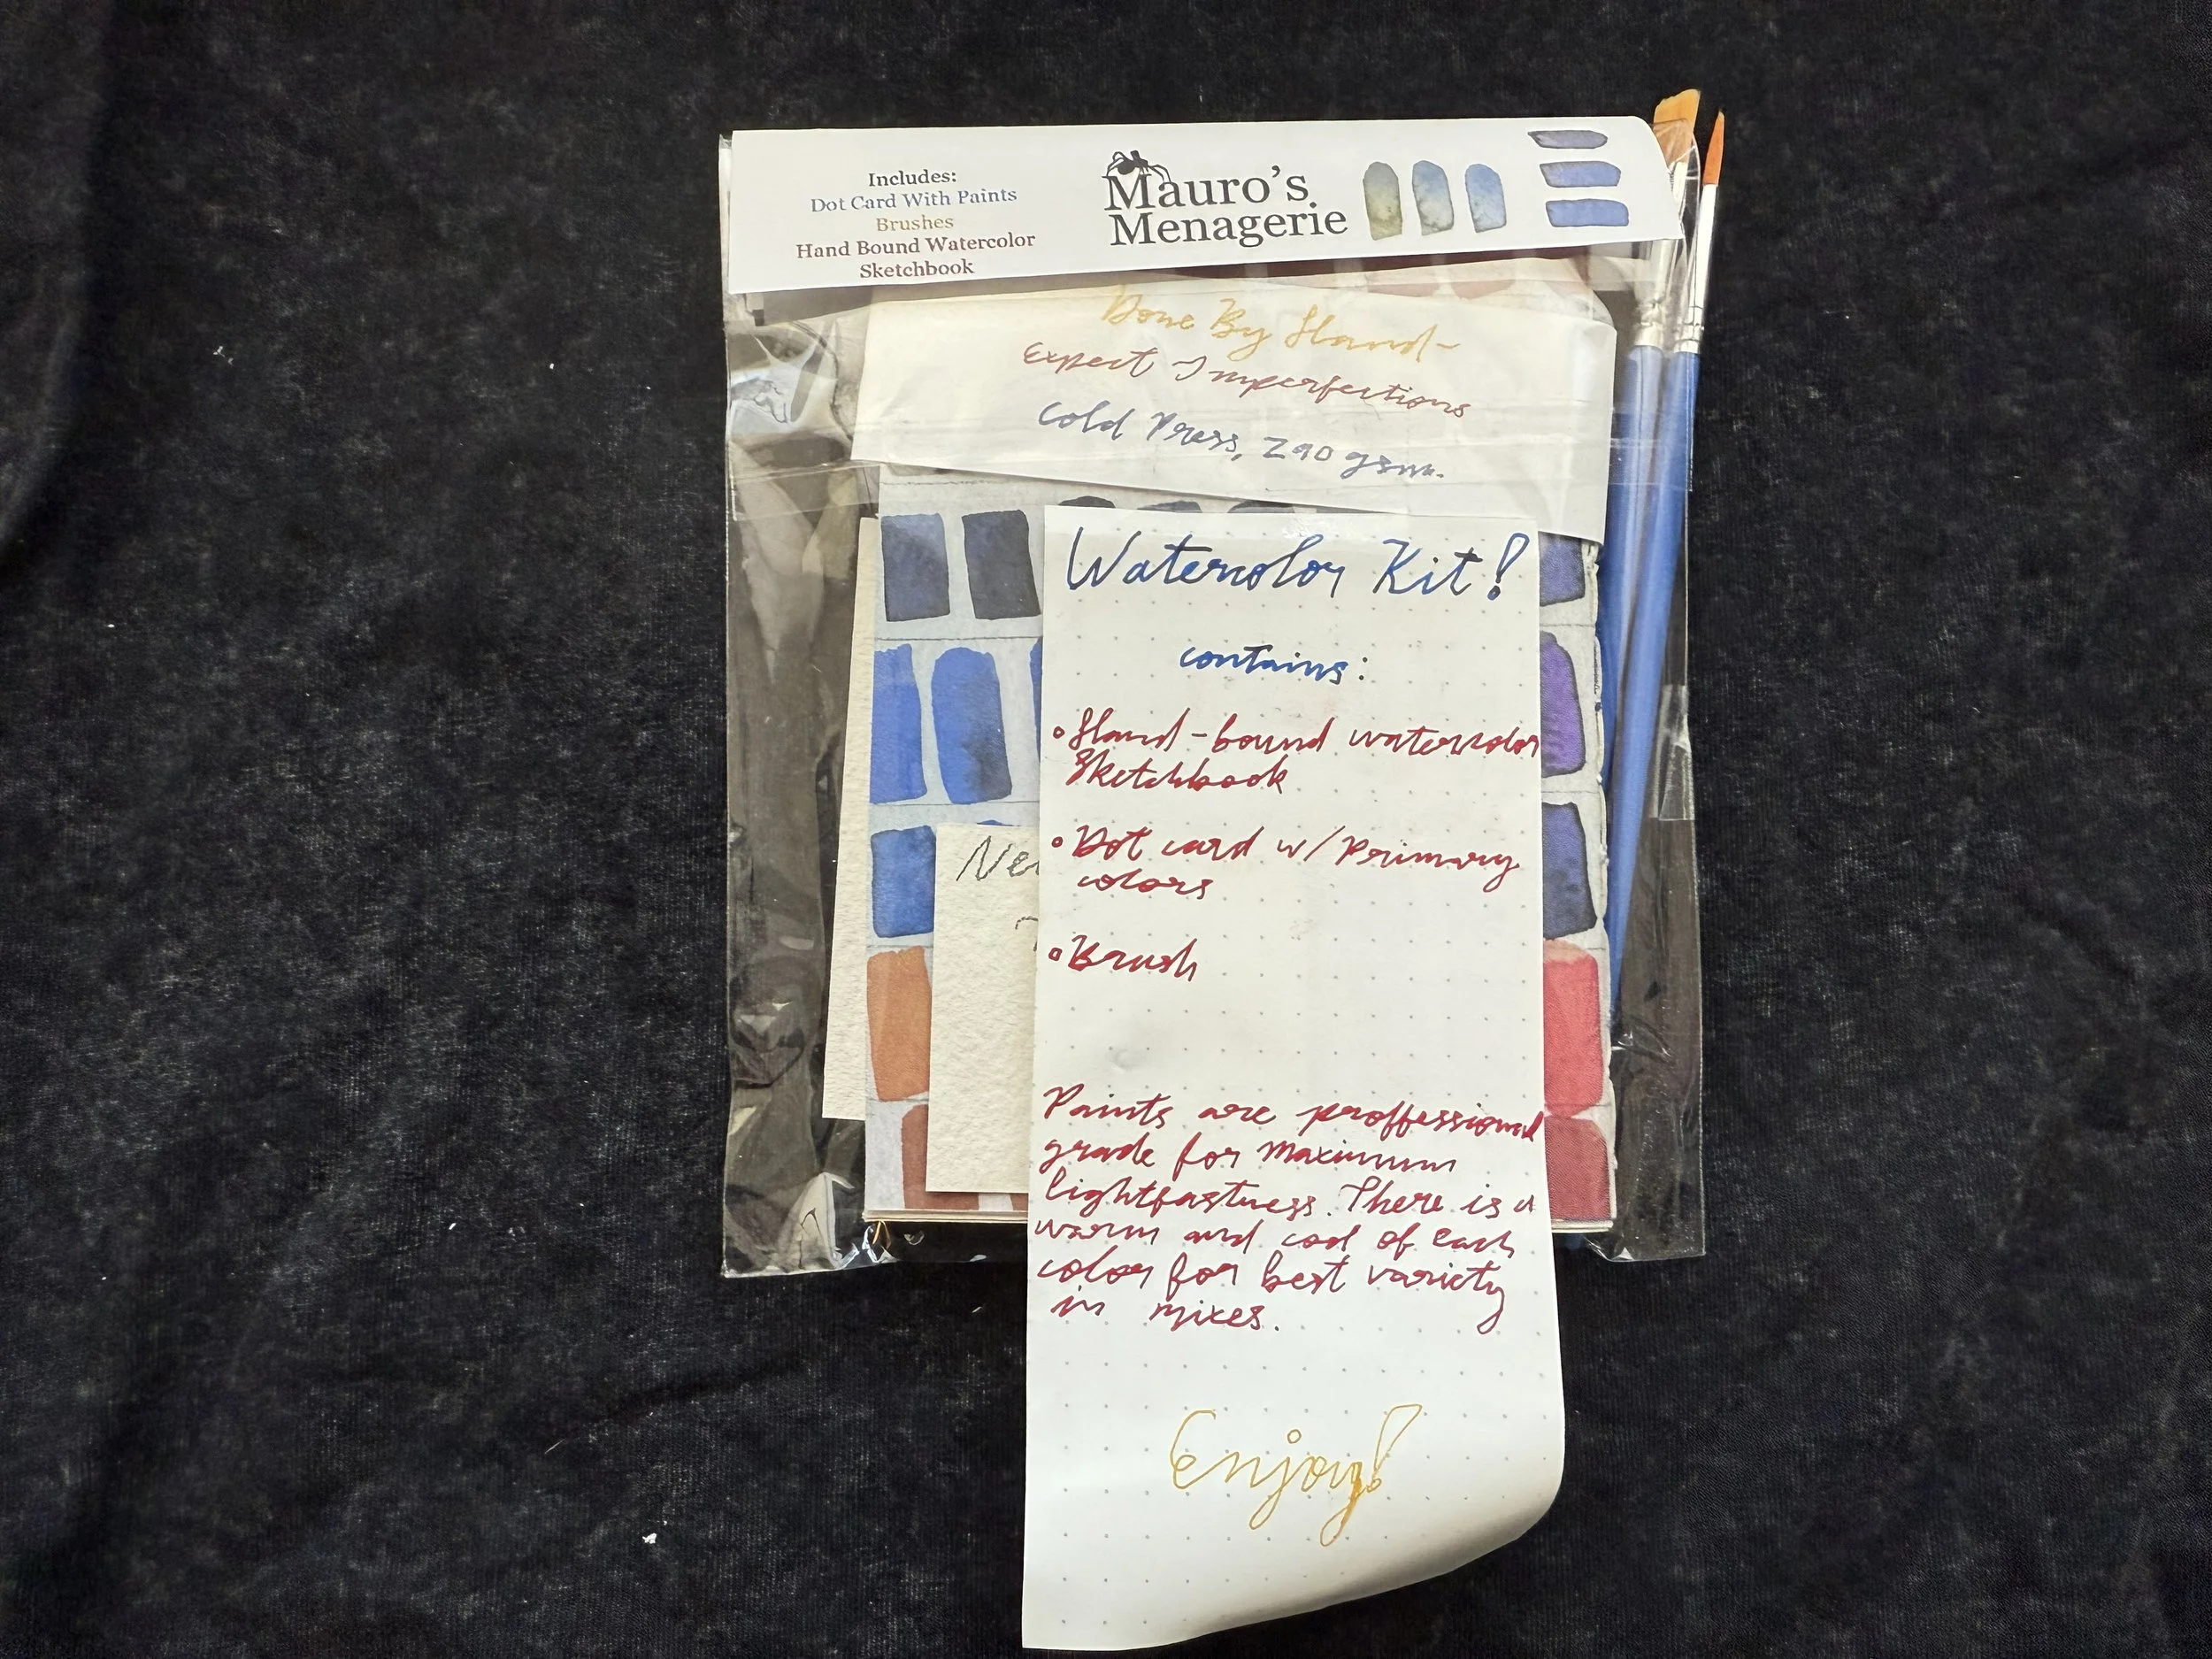 Includes:
Dot Card With Paints
Brushes
Hand Bound Watercolor
Sketchbook
Mauro's
Menagerie
Done By Hand-
Expect Imperfections
Cold Press, 290 gsm.
Watercolor Kit!
contains:
• Hand-bound watercolor
Sketchbook
• Dot card w/ Primary
colors
• Brush
Paints are proffessional
grade for maximum
lightfastness. There is a
warm and cool of each
color for best variety
in mixes.
Enjoy!